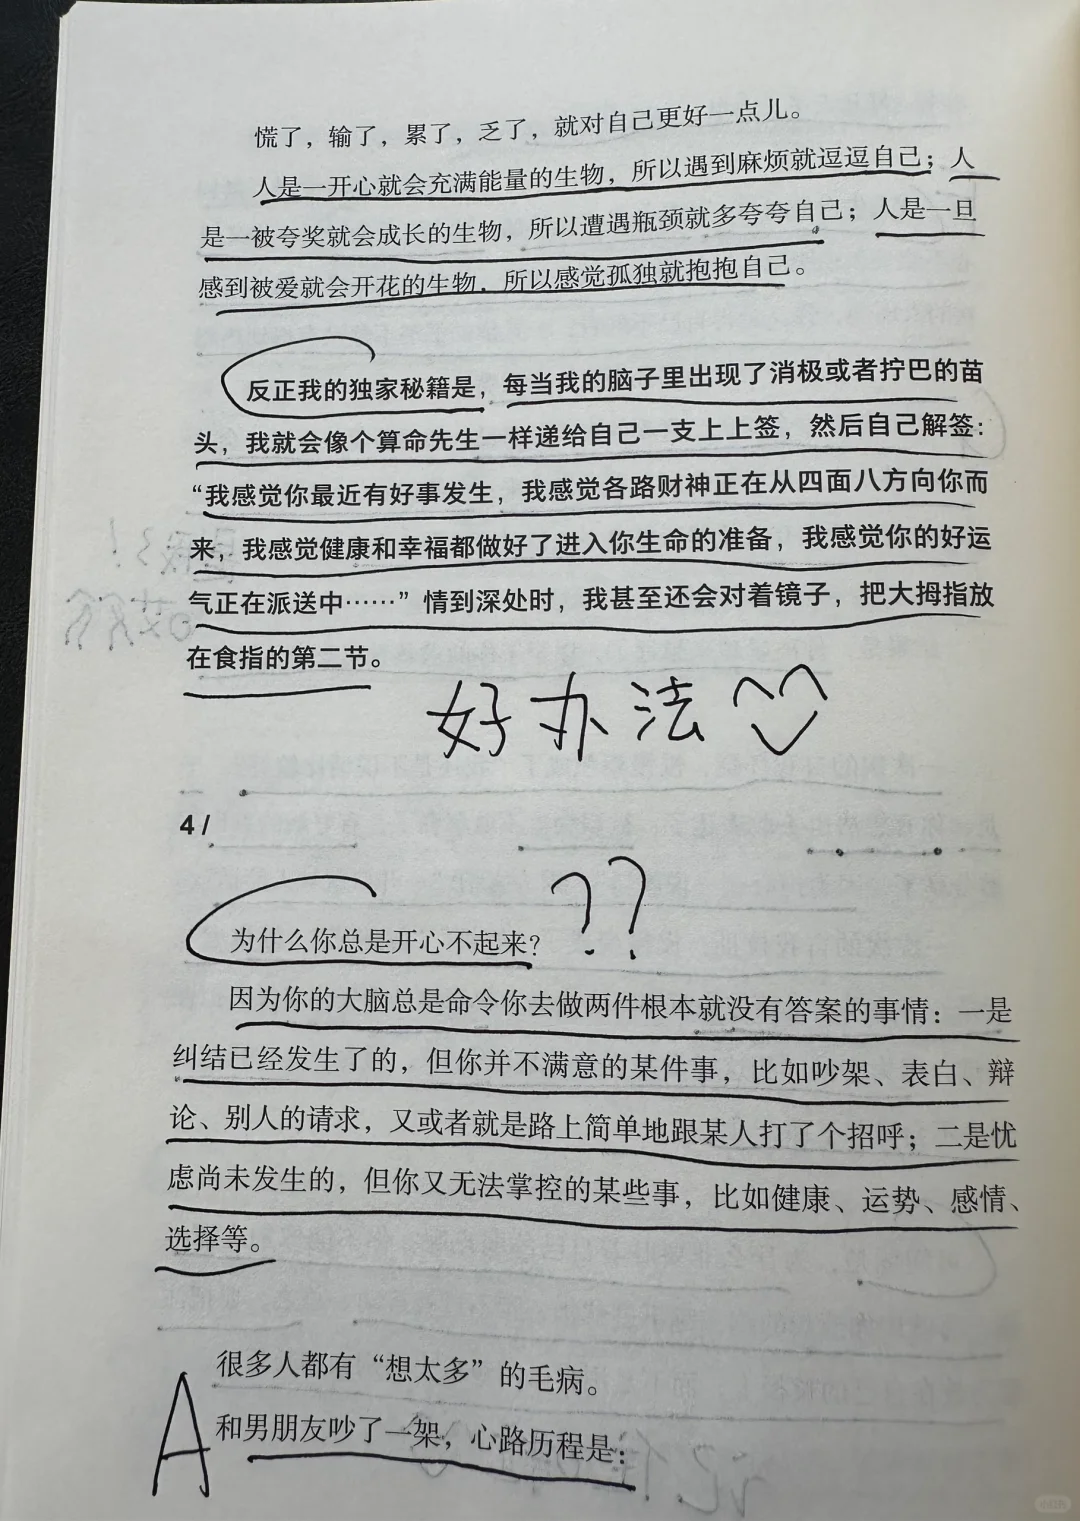 慌了，输了，累了，乏了，就对自己更好一点儿。
人是一开心就会充满能量的生物，所以遇到麻烦就逗逗自己；人
是一被夸奖就会成长的生物，所以遭遇瓶颈就多夸夸自己；人是一旦
感到被爱就会开花的生物，所以感觉孤独就抱抱自己。
反正我的独家秘籍是，每当我的脑子里出现了消极或者拧巴的苗
头，我就会像个算命先生一样递给自己一支上上签，然后自己解签：
“我感觉你最近有好事发生，我感觉各路财神正在从四面八方向你而
来，我感觉健康和幸福都做好了进入你生命的准备，我感觉你的好运
气正在派送中……”情到深处时，我甚至还会对着镜子，把大拇指放
在食指的第二节。
好办法
4 /
??
为什么你总是开心不起来？
因为你的大脑总是命令你去做两件根本就没有答案的事情：一是
纠结已经发生了的，但你并不满意的某件事，比如吵架、表白、辩
论、别人的请求，又或者就是路上简单地跟某人打了个招呼；二是忧
虑尚未发生的，但你又无法掌控的某些事，比如健康、运势、感情、
选择等。
很多人都有“想太多”的毛病。
A 和男朋友吵了一架，心路历程是：
小红书